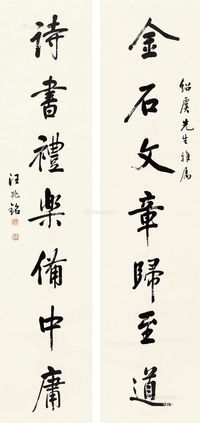 金石文章歸至道
紹虞先生雅屬
詩書禮樂備中庸
汪兆銘